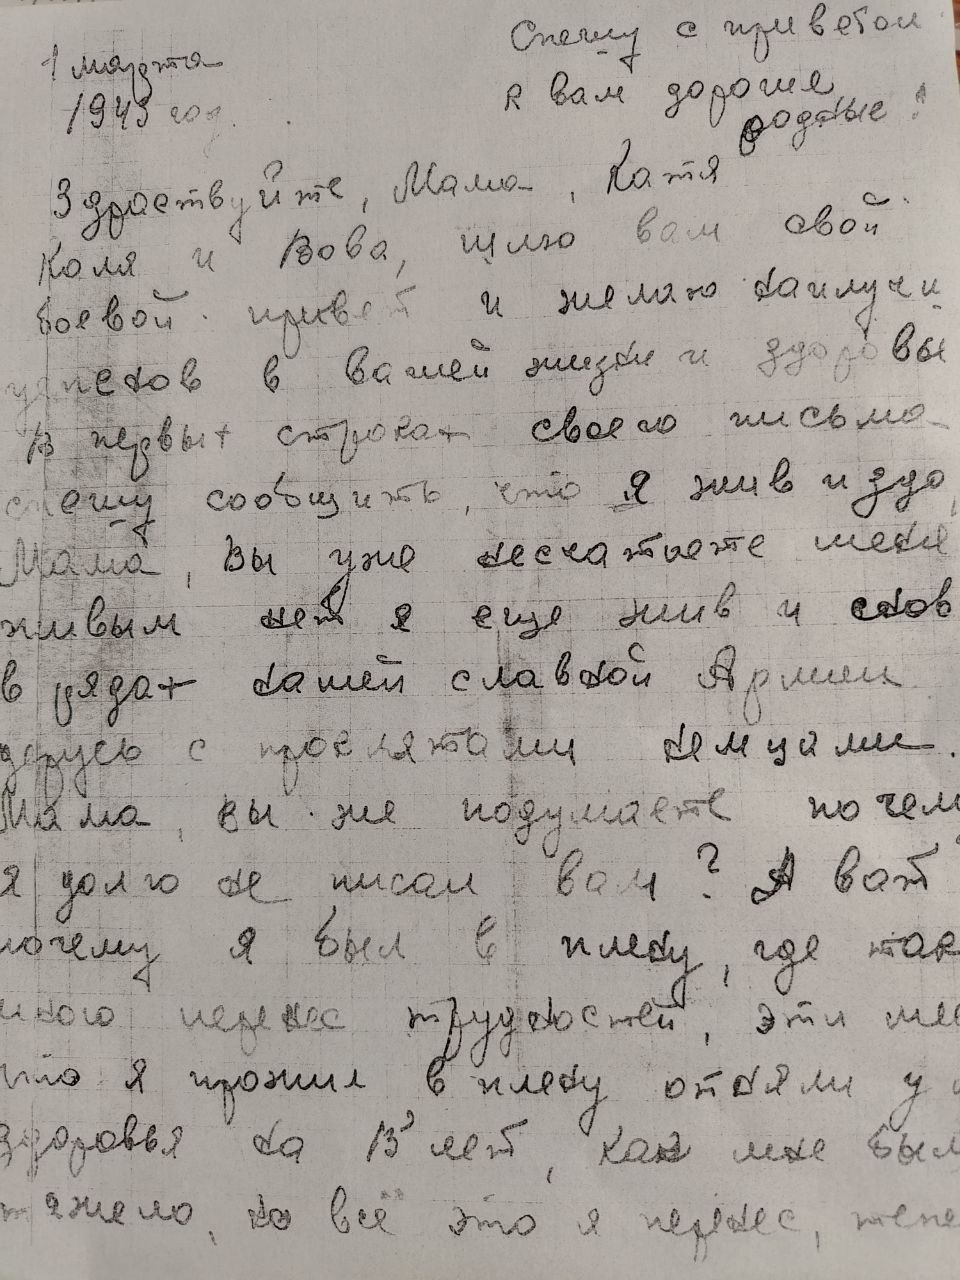 Спешу с приветом
1 марта
к вам дорогие
1943 год.
родные!
Здраствуйте, Мама, Катя
Коля и Вова, шлю вам свой
боевой привет и желаю наилучи
успехов в вашей жизни и здоровы
В первых строках своего письма
спешу сообщить, что я жив и здо
Мама, Вы уже несчатаете меня
живым нет я еще жив и снов
в рядах нашей славной Армии
дерусь с проклятами немцами.
Мама, вы же подумаете почем
я долго не писал вам? А ват
почему я был в плену, где так
много перенес трудностей, эти мес
что я прожил в плену отняли у м
здоровья на 15 лет, как мне был
тяжело, но всё это я перенес, тепе